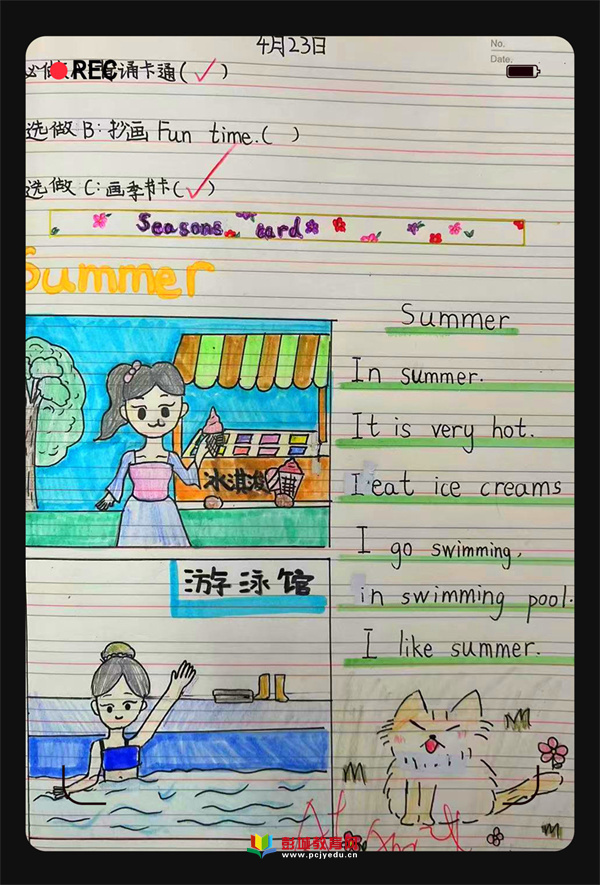 4月23日
No.
Date.
REC
诵卡通(✓)
选做 B: 抄画 Fun time.( )
选做 C: 画季节卡(✓)
Seasons card
Summer
Summer
In summer.
It is very hot.
I eat ice creams
I go swimming,
in swimming pool.
I like summer.
冰淇淋
游泳馆
彭城教育网
www.pcjyedu.cn